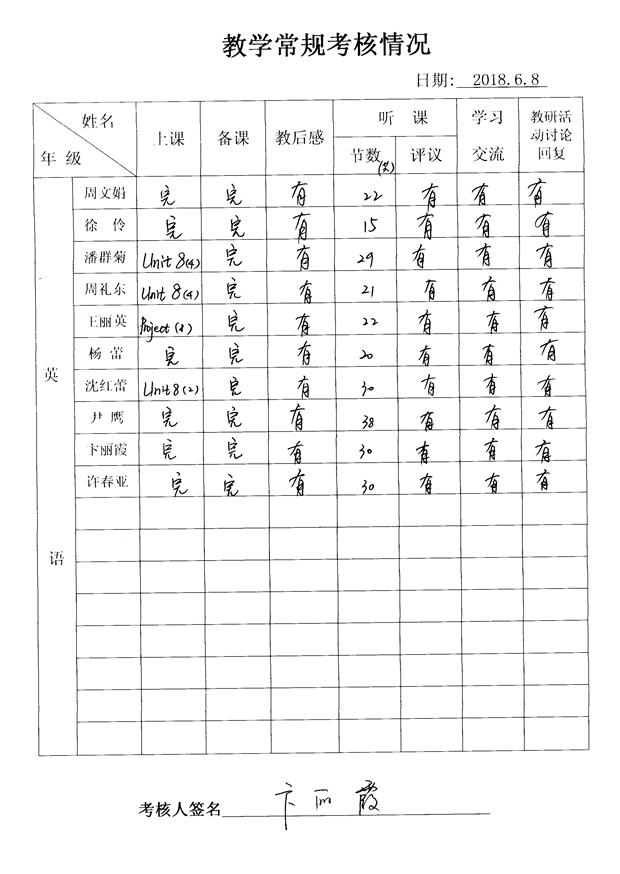 教学常规考核情况
日期: 2018.6.8
姓名 年级 上课 备课 教后感 听课 学习交流 教研活动讨论回复
节数(共) 评议
英语
周文娟 完 完 有 22 有 有 有
徐伶 完 完 有 15 有 有 有
潘群菊 Unit 8(4) 完 有 29 有 有 有
周礼东 Unit 8(4) 完 有 21 有 有 有
王丽英 Project(8) 完 有 22 有 有 有
杨蕾 完 完 有 20 有 有 有
沈红蕾 Unit8(2) 完 有 30 有 有 有
尹鹰 完 完 有 38 有 有 有
卞丽霞 完 完 有 30 有 有 有
许春亚 完 完 有 30 有 有 有
考核人签名 卞丽霞